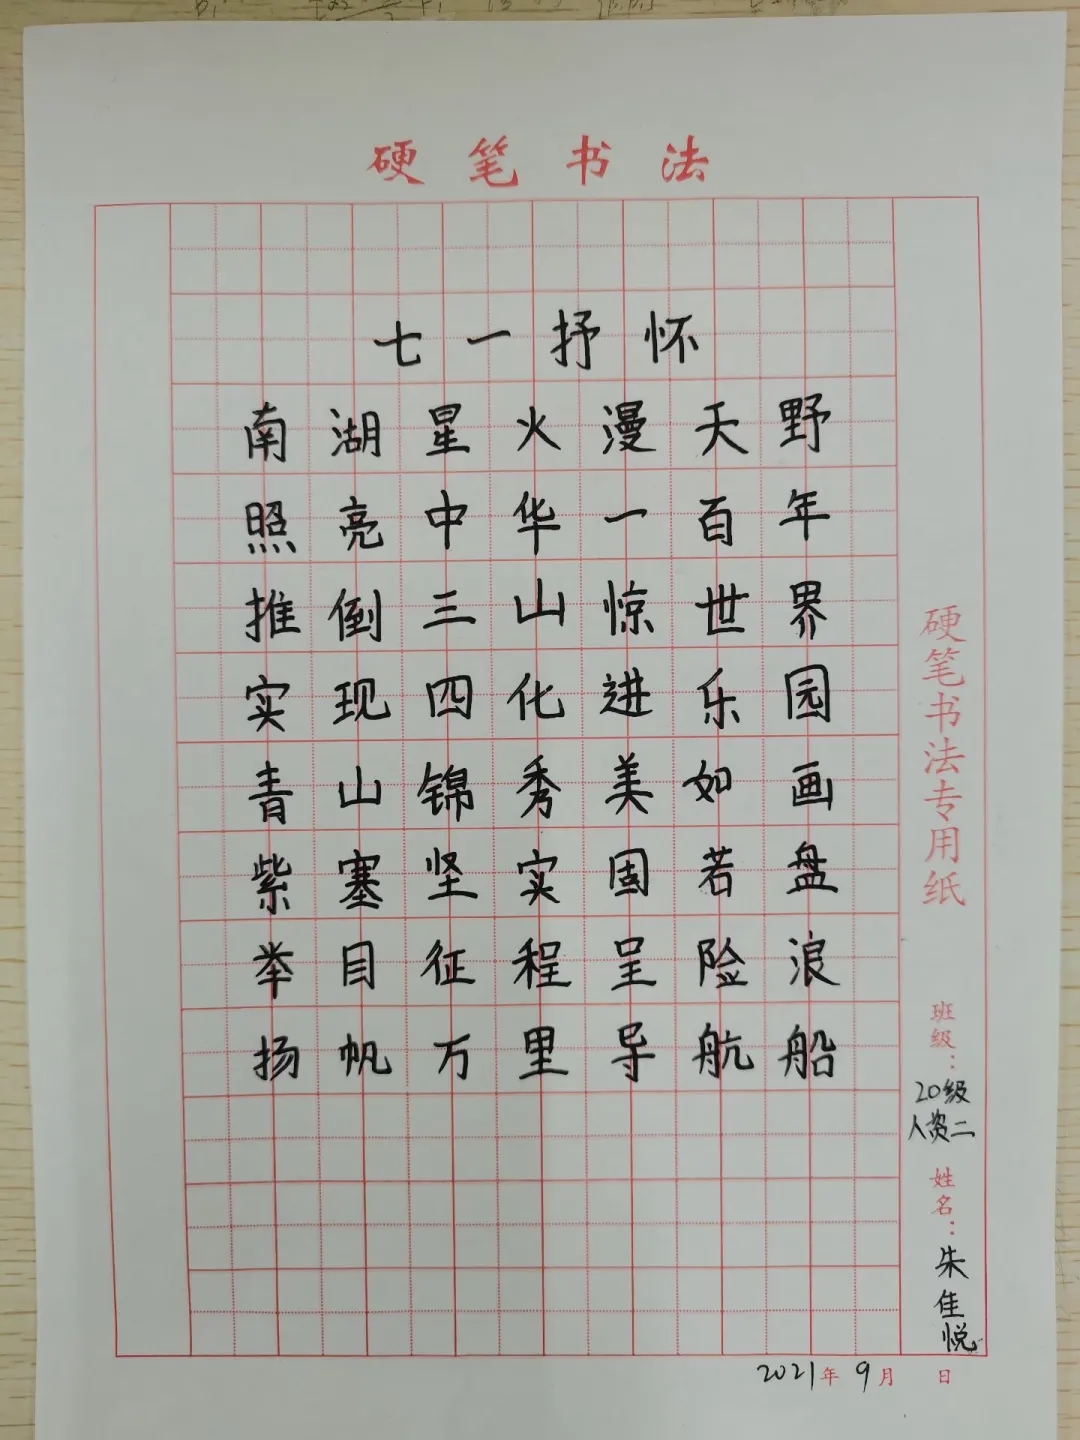 硬笔书法
七一抒怀
南湖星火漫天野
照亮中华一百年
推倒三山惊世界
实现四化进乐园
青山锦秀美如画
紫塞坚实固若盘
举目征程呈险浪
扬帆万里导航船
硬笔书法专用纸
班级：
20级
人资二
姓名：
朱佳悦
2021年9月 日